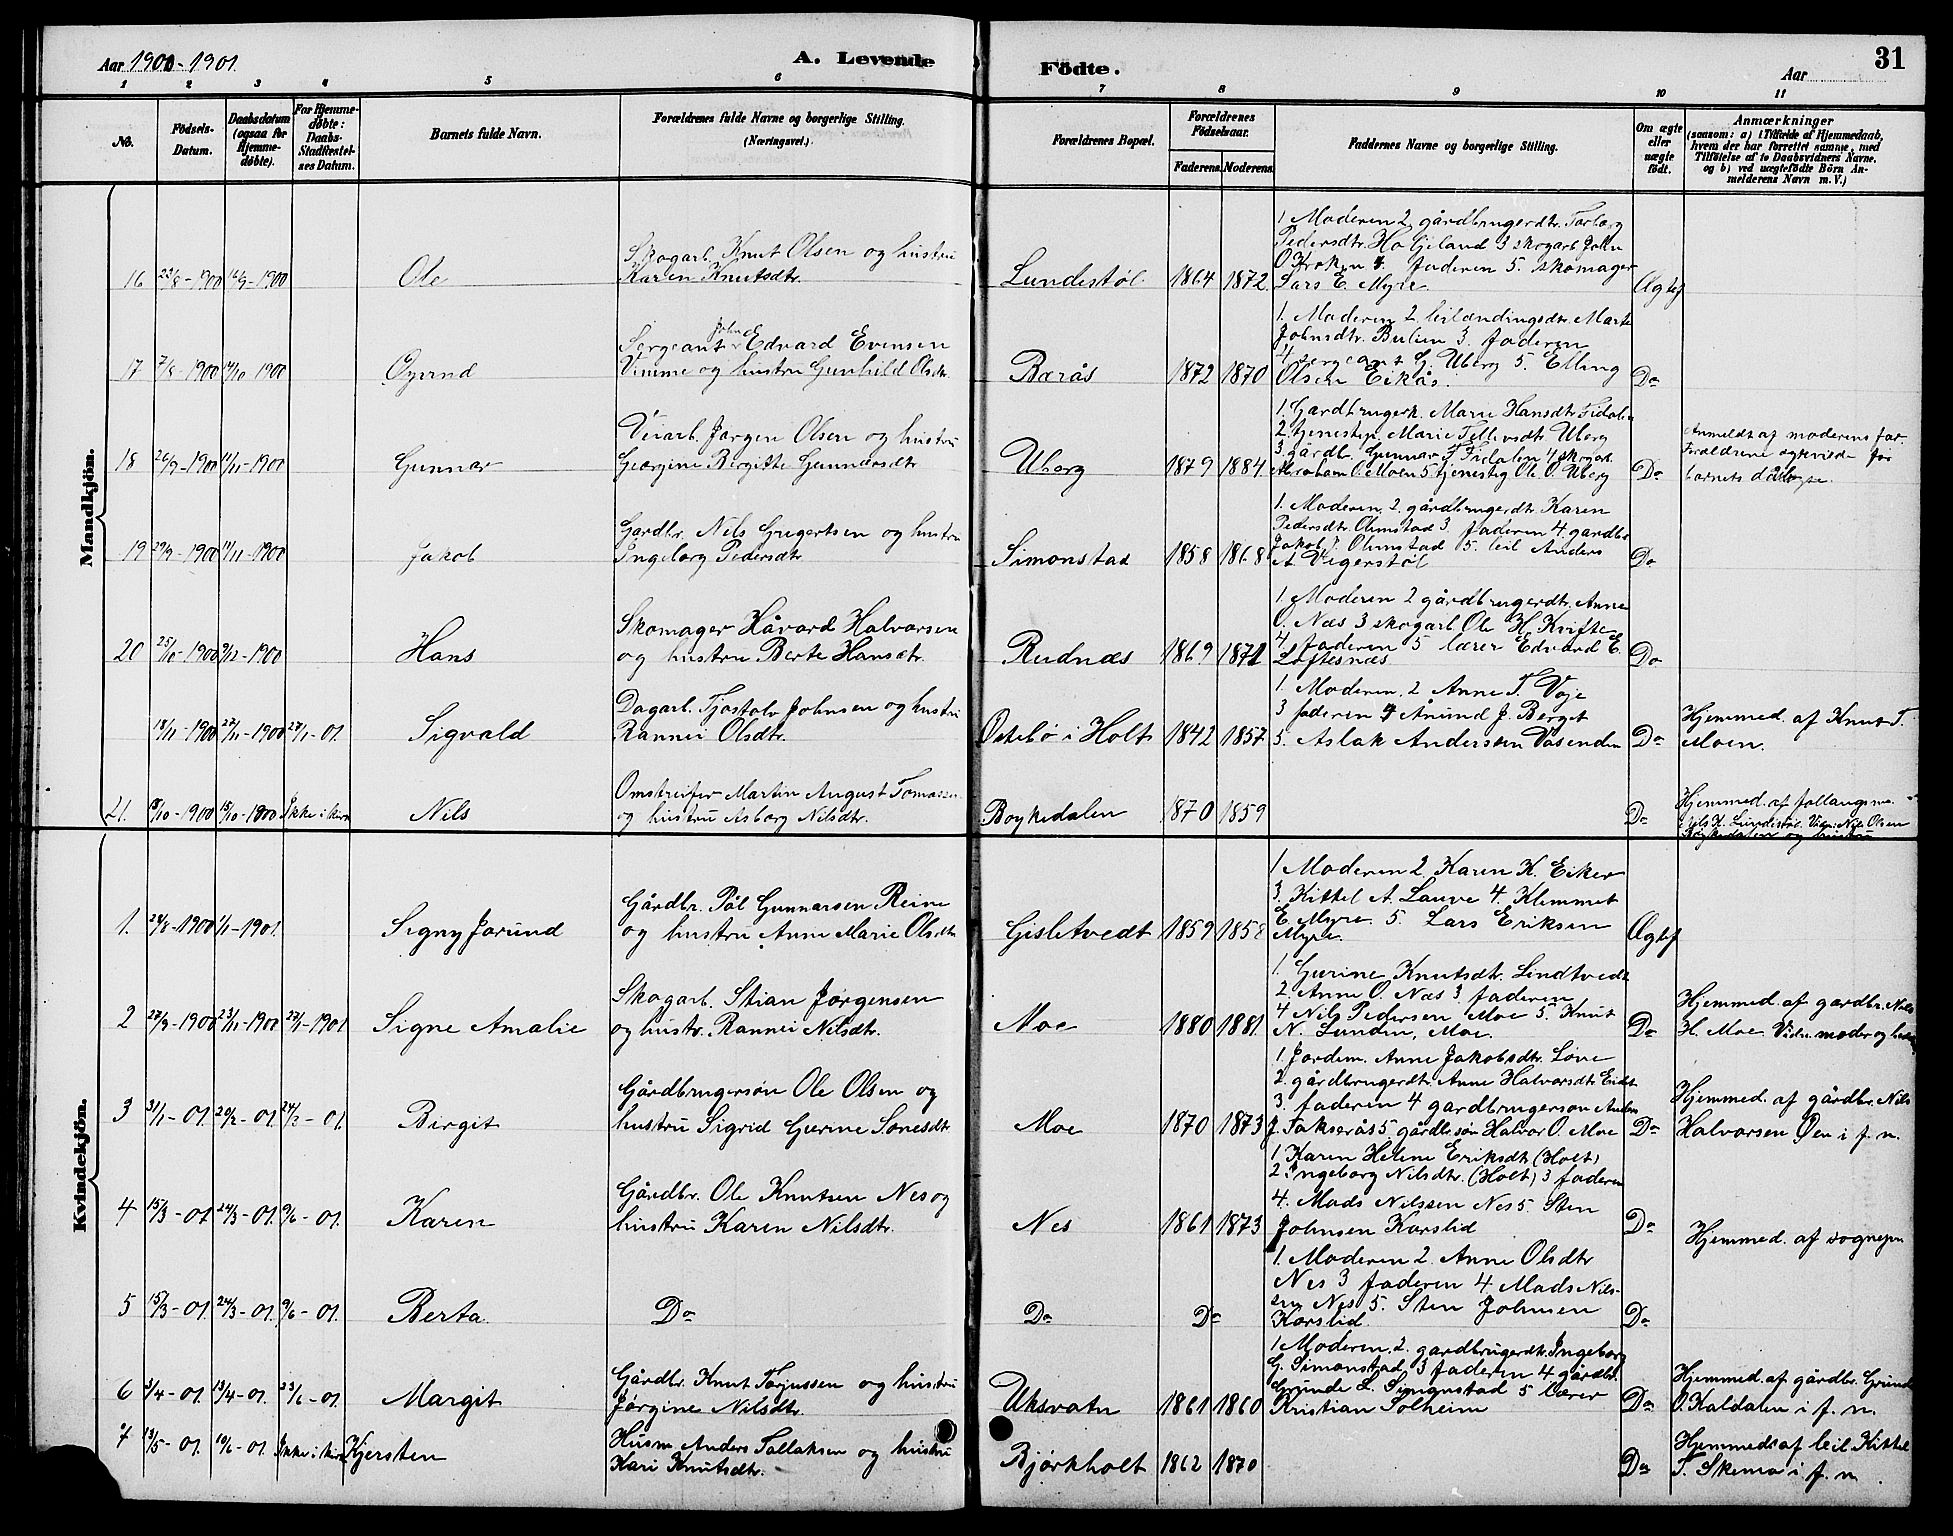 Aar 1900-1901.
A. Levende Fødte.
Aar
31
1 2 3 4 5 6 7 8 9 10 11
No.
Fødsels-Datum.
Daabsdatum (ogsaa for Hjemme-døbte).
For Hjemme-døbte: Daabs-Stadfæstel-ses Datum.
Barnets fulde Navn.
Forældrenes fulde Navne og borgerlige Stilling. (Næringsvei.)
Forældrenes Bopæl.
Forældrenes Fødselsaar.
Faderens. Moderens.
Faddernes Navne og borgerlige Stilling.
Om ægte eller uægte født.
Anmærkninger
(saasom: a) i Tilfælde af Hjemmedaab,
hvem der har forrettet samme, med
Tilføielse af to Daabsvidners Navne,
og b) ved uægtefødte Børn An-
melderens Navn m. V.)
Mandkjøn.
16 23/8-1900 16/9-1900 Ole
Skogarb. Knut Olsen og hustru
Karen Knutsdtr.
Lundestøl 1864 1872
1 Moderen 2 gårdbrugerdtr. Torborg
Pedersdtr. Hogeland 3 skogarb. John
O Kroken 4. Faderen 5. skomager
Lars E. Myre.
Ægtef
17 7/8-1900 14/10-1900 Øyvind
Sergeant John Edvard Evensen
Vimme og hustru Gunhild Olsdtr.
Barås 1872 1870
1. Moderen 2. leilændingsdtr. Marte
Johnsdtr. Berlien 3. faderen
4 sergeant G. Uberg 5. Elling
Olsen Eikås.
Do
18 26/9-1900 11/11-1900 Gunnar
Veiarb. Jørgen Olsen og hustru
Georgine Birgitte Gunnarsdtr
Uberg 1879 1884
1. Gardbrugerk. Marie Hansdtr. Fidalen
2. tjenestep. Marie Tellevsdtr. Uberg
3. gårdb. Gunnar T Fidalen 4 skogarb.
Abraham O. Moen 5. tjenestg Ole O. Uberg
Do
Anmeldt af moderens far.
Forældrene ægteviede før
barnets dåb
19 29/9-1900 11/11-1900 Jakob
Gardbr. Nils Gregertsen og hustru
Ingeborg Pedersdtr.
Simonstad 1858 1868
1. Moderen, 2. gårdbrugerdtr. Karen
Pedersdtr. Ohmstad 3 faderen 4. gardbr
Jakob P. Ohmstad 5. leil Anders
A Vegerstøl
Do
20 25/10-1900 9/12-1900 Hans
Skomager Håvard Halvorsen
og hustru Berte Hansdtr.
Rudnæs 1869 1871
1 Moderen 2 gårdbrugerdtr. Anne
O. Næs 3 skogarb. Ole H. Kvifte
4. faderen 5 lærer Edvard E.
Loftesnæs
Do
18/11-1900 27/11-1900 27/1-01. Sigvald
Dagarb. Tjostolv Johnsen og hustru
Rannei Olsdtr.
Østebø i Holt 1842 1857
1. Moderen, 2 Anne T. Voje
3 faderen 4 Ånund J. Berget
5. Aslak Anderssen Vasenden
Do
Hjemmed. af Knut T.
Moen.
21. 18/10-1900 18/10-1900 Ikke i kirk Nils
Omstreifer Martin August Tomassen
og hustru Asborg Nilsdtr.
Boykedalen 1870 1859
Do
Hjemmed. af
Nils K. Lundestøl. Vidn. Nils Olsen
Bøykedalen og hustru
Kvindekjøn.
1. 24/8-1900 1/1-1901. Signy Jorund
Gårdbr. Pål Gunnarsen Reine
og hustru Anne Marie Olsdtr
Gisletvedt 1859 1858
1 Moderen 2. Karen K. Eiker
3. Kittel A. Lauve 4. Klemmet
E. Myre 5. Lars Eriksen
Myre.
Ægtef
2 27/9-1900 23/11-1900 27/1-1901 Signe Amalie
Skogarb. Stian Jørgensen
og hustr. Rannei Nilsdtr.
Moe 1880 1881
1. Gurine Knutsdtr. Lindtvedt
2. Anne O. Næs 3. faderen
4 Nils Pedersen Moe 5. Knut
N. Lunden, Moe.
Do
Hjemmed. af gardbr. Nils
H. Moe Vidn. moder og
3 31/1-01. 20/2-01. 24/3-01. Birgit
Gårdbrugersøn Ole Olsen og
hustru Sigrid Gurine Sonesdtr
Moe 1870 1873
1 Jordem. Anne Jakobsdtr. Løve
2. gårdbrugerdtr. Anne Halvorsdtr Eidt
3. faderen 4 gardbrugerson Anders
J. Takserås 5. gårdbrsøn Halvor O. Moe
Do
Hjemmed. af gårdbr. Nils
Halvorsen Øen i f. n.
4 15/3-01 24/3-01. 9/6-01. Karen
Gårdbr. Ole Knutsen Nes og
hustru Karen Nilsdtr.
Nes 1861 1873
1. Karen Helene Eriksdtr. (Holt)
2. Ingeborg Nilsdtr. (Holt) 3 faderen
4. Mads Nilssen Nes 5. Sten
Johnsen Korslid
Do
Hjemmed. af sognepr
5 15/3-01. 24/3-01. 9/6-01. Berta
Do Do Do
1. Moderen 2. Anne Olsdtr
Nes 3 faderen 4. Mads Nils-
sen Nes 5. Sten Johnsen
Korslid.
Do
6 3/4-01. 13/4-01. 23/6-01. Margit
Gårdbr. Knut Torjussen og hustru
Jørgine Nilsdtr.
Uksvatn 1861 1860
1 Moderen, 2. gardbrugerdtr. Ingeborg
G. Simonstad 3 faderen 4 gårdbr.
Grunde L. Simonstad 5 Lærer
Kristian Solheim
Do
Hjemmed. af gårdbr. Grunde
O. Kaldalen i f. n.
7 13/5-01. 10/6-01. Ikke i kirk Kjersten
Husm. Anders Sallaksen og hustru
Kari Knutsdtr.
Bjørkholt 1862 1870
Do
Hjemmed. af leil Kittel
T. Skomo i f. n.